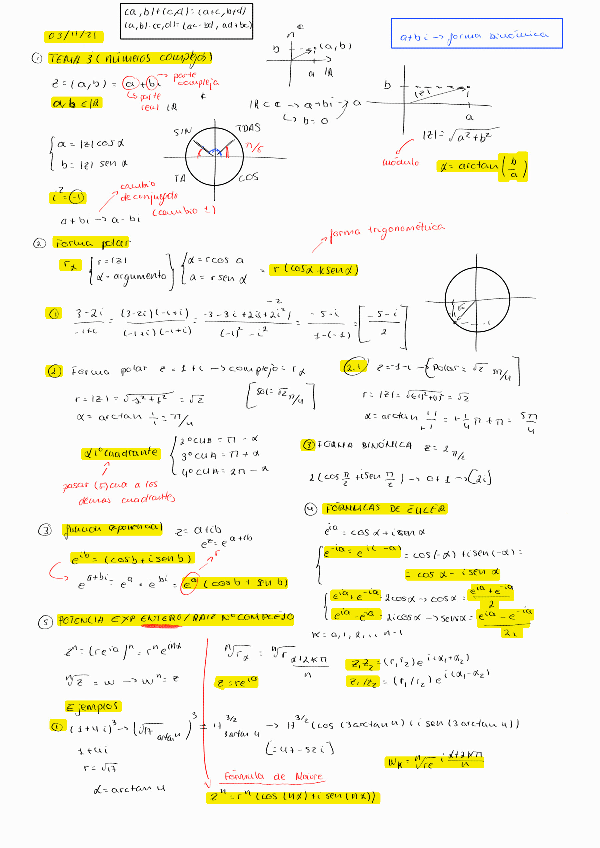 (a,b)+(c,d)=(a+c,b+d)
(a,b)·(c,d)=(ac-bd, ad+bc)
a+bi → forma binómica
03/11/21
① TEMA 3 (números complejos)
z=(a,b) = a+bi → parte compleja
↳ parte real ℝ
a,b ∈ ℝ
ℂ
b
(a,b)
a ℝ
ℝ ⊂ ℂ → a+bi → a
↳ b=0
b
|z|
a
|z| = √a²+b²
módulo
α = arctan (b/a)
{ a = |z| cos α
b = |z| sen α
SIN
TDAS
TA
COS
π/6
i² = -1
cambio de conjugado
a+bi → a-bi (cambio ±)
② Forma polar
forma trigonométrica
rα { r=|z|
α=argumento } { α = r cos a
a = r sen α = r (cos α + sen α)
① 3-2i / -1+i = (3-2i)(-1+i) / (-1+i)(-1+i) = -3-3i+2i+2i² / (-1)²-i² = -5-i / 1-(-1) = [-5-i / 2]
② Forma polar z=1+i → complejo = rα
r=|z| = √1²+1² = √2
[sol = √2 π/4]
α = arctan 1/1 = π/4
2.1 z=-1-i → [Polar = √2 5π/4
r=|z| = √(-1)²+(-1)² = √2
α = arctan -1/-1 = 1/4 π + π = 5π/4
α 1º cuadrante { 2º CUA = π - α
3º CUA = π + α
4º CUA = 2π - α
pasar (5) cua a los demas cuadrantes
③ FORMA BINÓMICA z = 2 π/2
2(cos π/2 + i sen π/2) → 0+1 → [2i]
③ función exponencial z = a+ib
e^z = e^(a+ib)
e^(ib) = (cos b + i sen b)
e^(a+bi) = e^a + e^(bi) = e^a (cos b + i sen b)
④ FÓRMULAS DE EULER
e^(iα) = cos α + i sen α
{ e^(-iα) = e^(i(-α)) = cos(-α) + i sen(-α) =
= cos α - i sen α
{ e^(iα)+e^(-iα) = 2cos α → cos α = e^(iα)+e^(-iα) / 2
e^(iα)-e^(-iα) = 2i cos α → sen α = e^(iα)-e^(-iα) / 2i
⑤ POTENCIA EXP ENTERO/RAIZ Nº COMPLEJO
k = 0,1,2,... n-1
z^n = (re^(iα))^n = r^n e^(inα)
ⁿ√rα = ⁿ√r α+2kπ / n
z₁z₂ = (r₁r₂) e^(i(α₁+α₂))
ⁿ√z = w → w^n = z
z = re^(iα)
z₁/z₂ = (r₁/r₂) e^(i(α₁-α₂))
Ejemplos
① (1+4i)³ → (√17 arctan 4)³ = 17^(3/2) 3arctan 4 → 17^(3/2) (cos(3arctan 4) + i sen(3arctan 4))
1+4i
[=-47-52i]
r=√17
Wk = ⁿ√r e^(i (α+2kπ)/n)
α = arctan 4
Fórmula de Moivre
z^n = r^n (cos(nα) + i sen(nα))